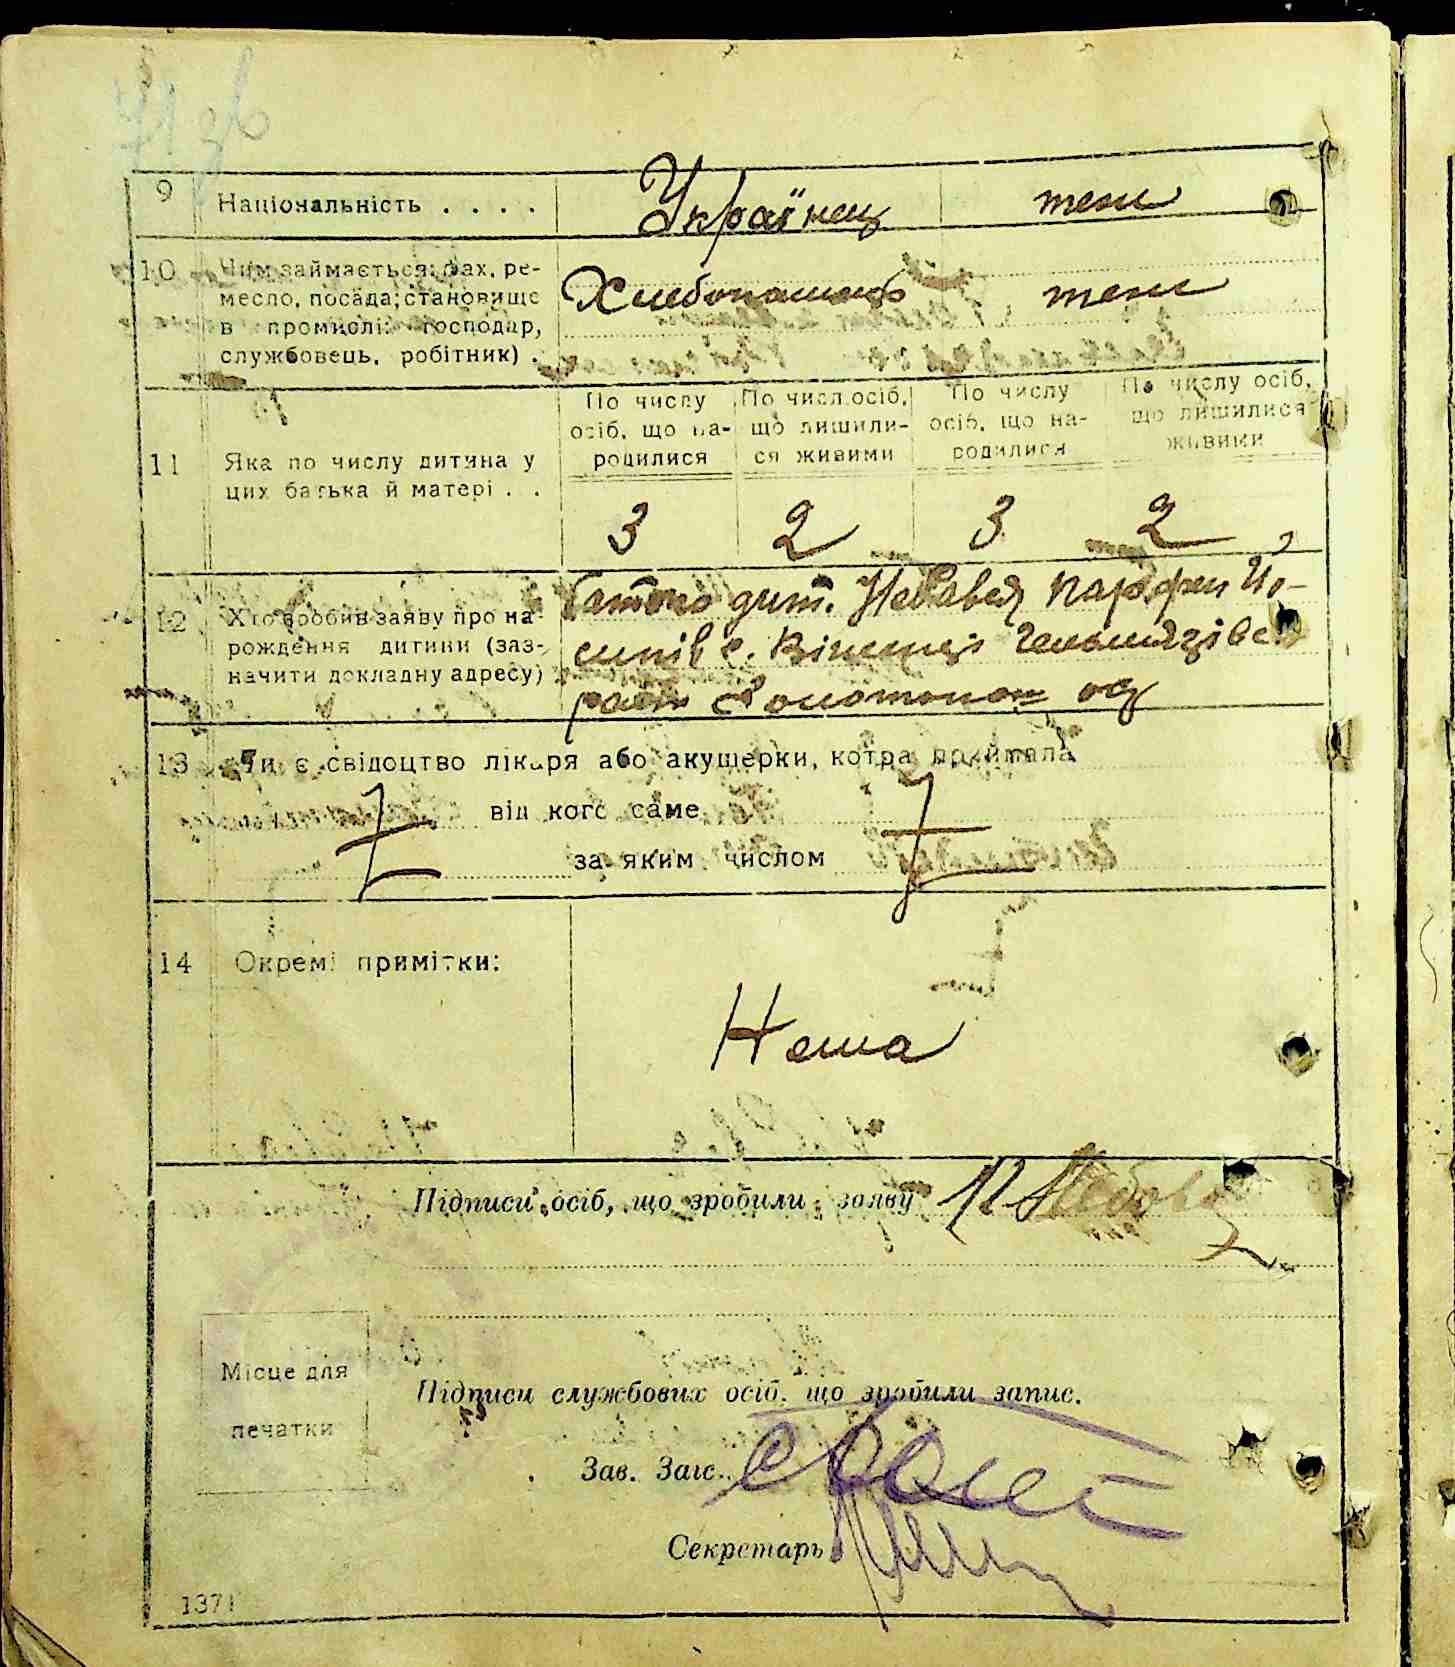 9 Національність . . . . Українець теж
10 Чим займається: фах, ре-
месло, посада; становище
в промислі: господар,
службовець, робітник) .
Хлебопашець теж
По числу осіб, що на-родилися
По числ.осіб, що лишили-ся живими
По числу осіб, що на-родилися
По числу осіб, що лишилися живими
11 Яка по числу дитина у
цих батька й матері . .
3 2 3 2
12 Хто зробив заяву про на-
рождення дитини (заз-
начити докладну адресу)
батько дит. Парфен Йо-
сипів с. Гельмязівс
рай Золотонош ок
13 Чи є свідоцтво лікаря або акушерки, котра приймала
від кого саме
за яким числом
14 Окремі примітки:
Нема
Підписи осіб, що зробили заяву
Місце для
печатки
Підписи службових осіб, що зробили запис.
Зав. Загс..
Секретарь
1371